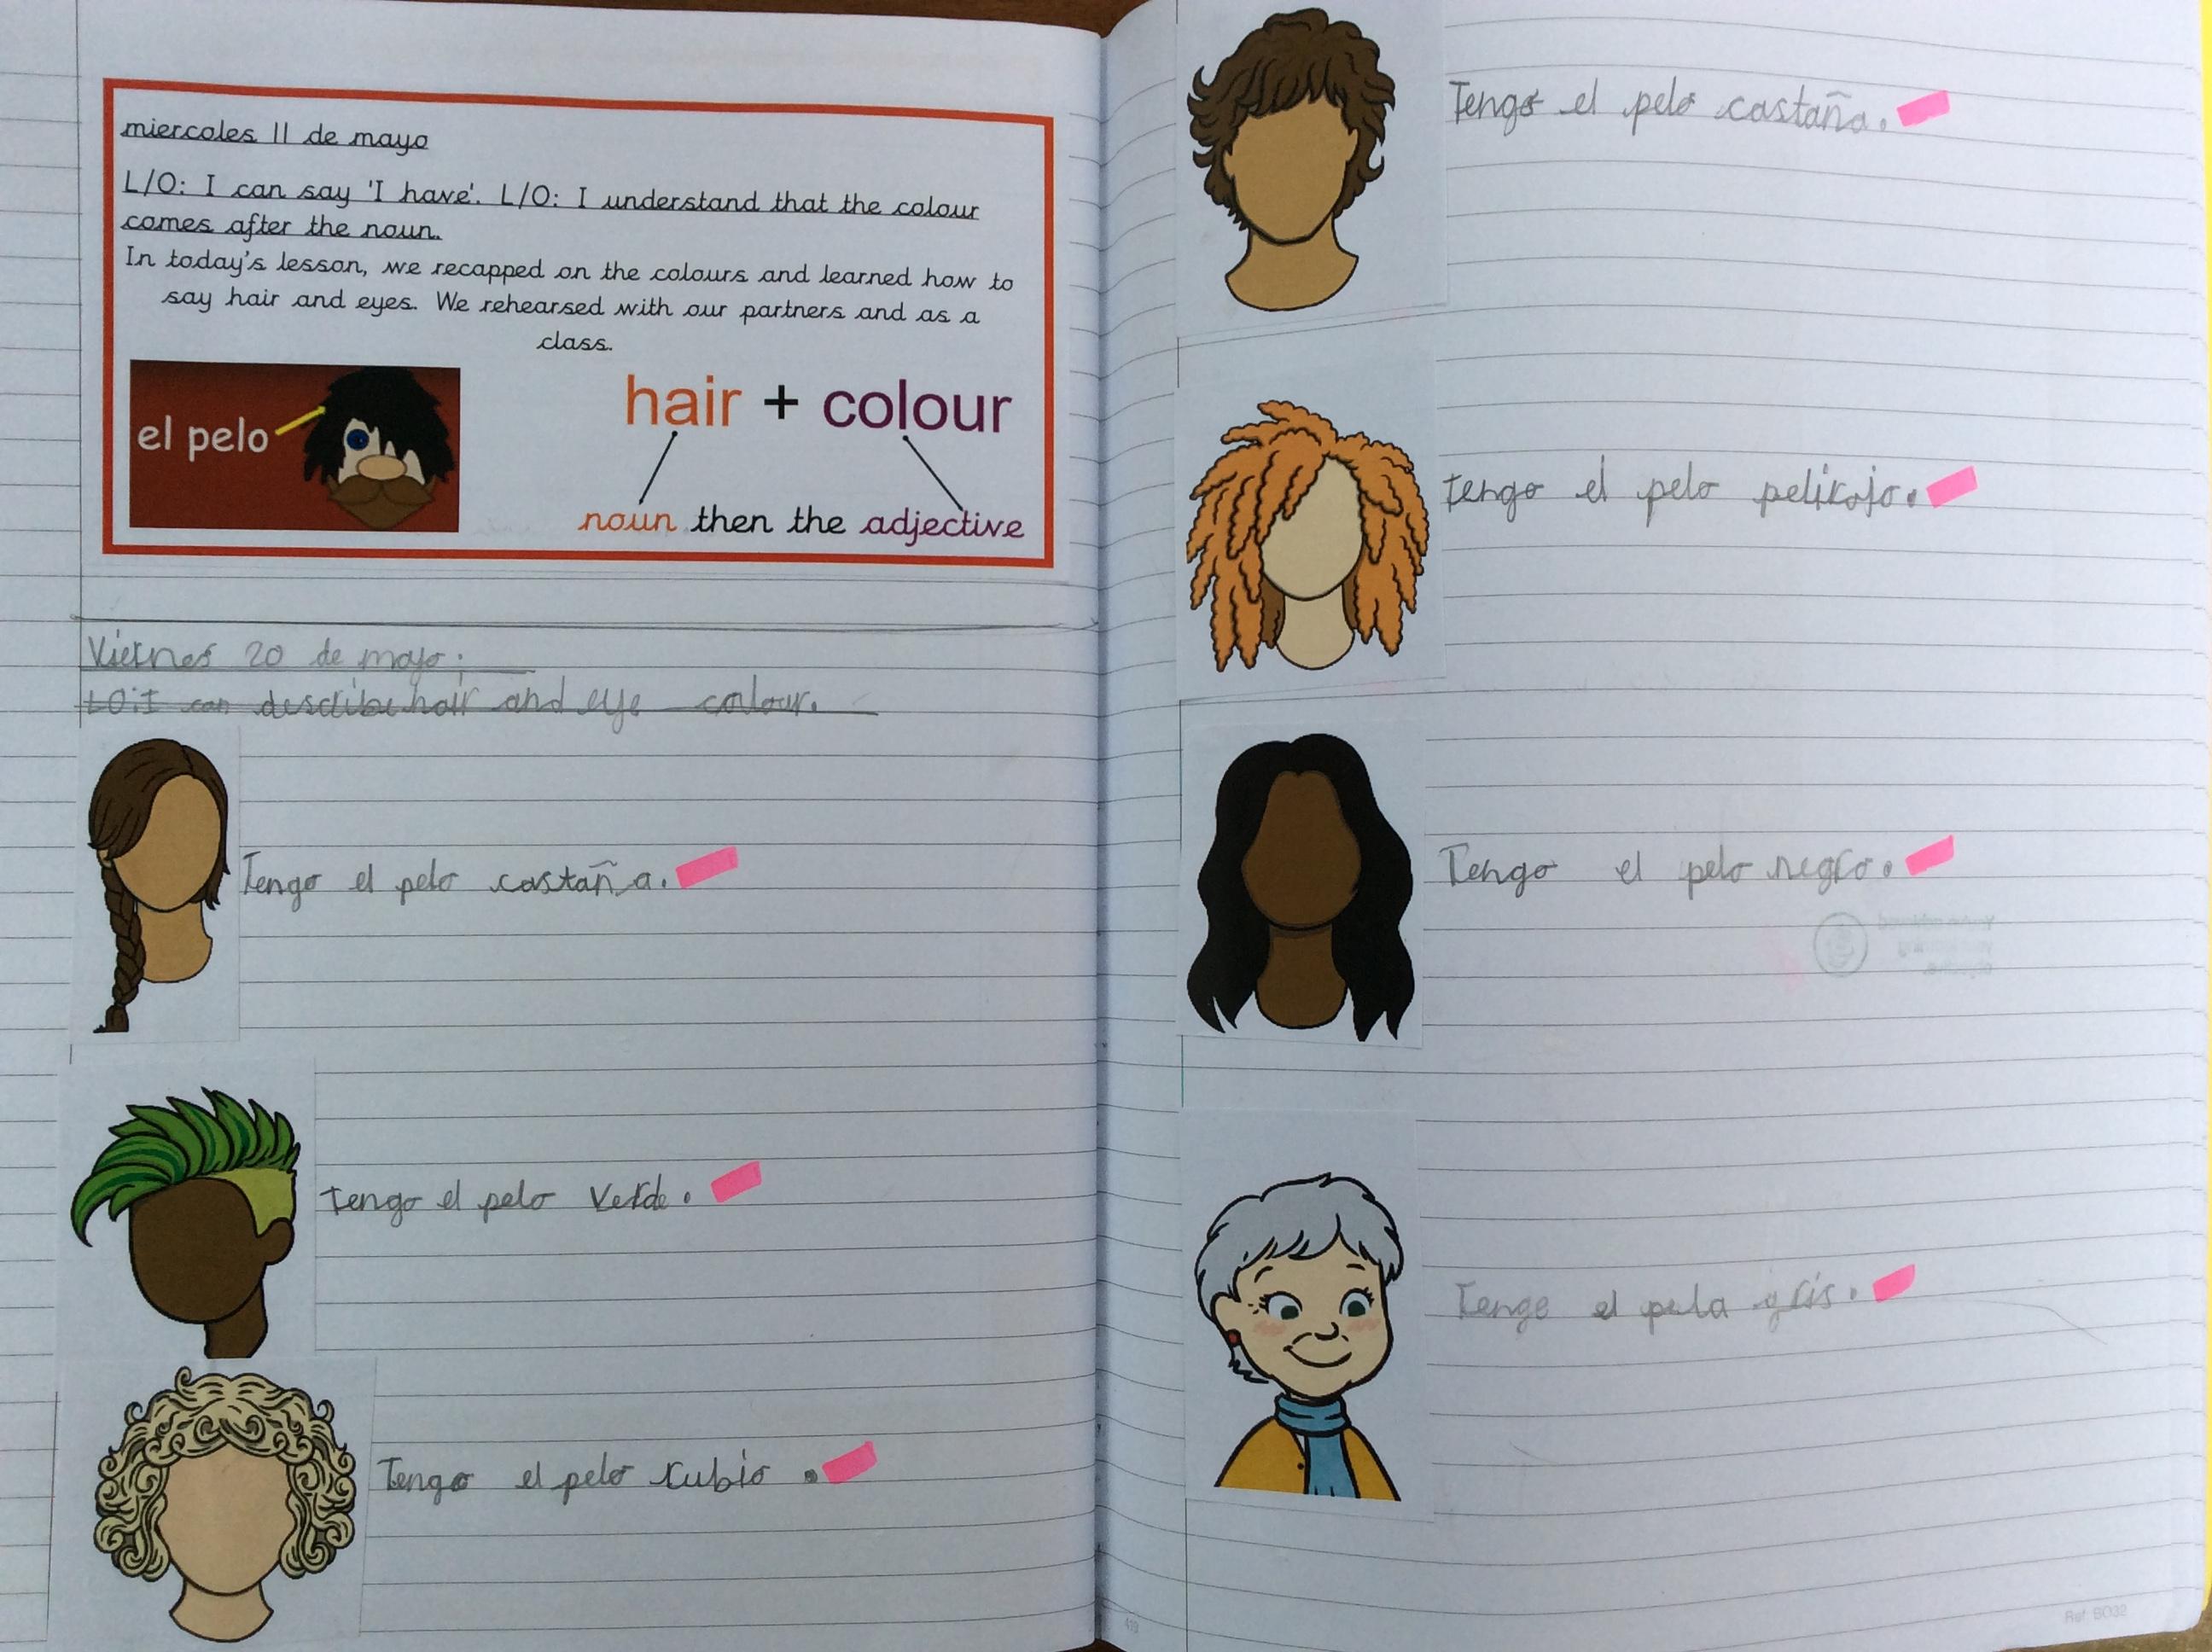 miercoles 11 de mayo
L/O: I can say 'I have'. L/O: I understand that the colour
comes after the noun.
In today's lesson, we recapped on the colours and learned how to
say hair and eyes. We rehearsed with our partners and as a
class.
el pelo
hair + colour
noun then the adjective
Viernes 20 de mayo:
LO: I can describe hair and eye colour.
Tengo el pelo castaña.
tengo el pelo verde.
Tengo el pelo rubio.
Tengo el pelo castaña.
tengo el pelo pelirojo.
Tengo el pelo negro.
Tengo el pela gris.
Ref: BO32